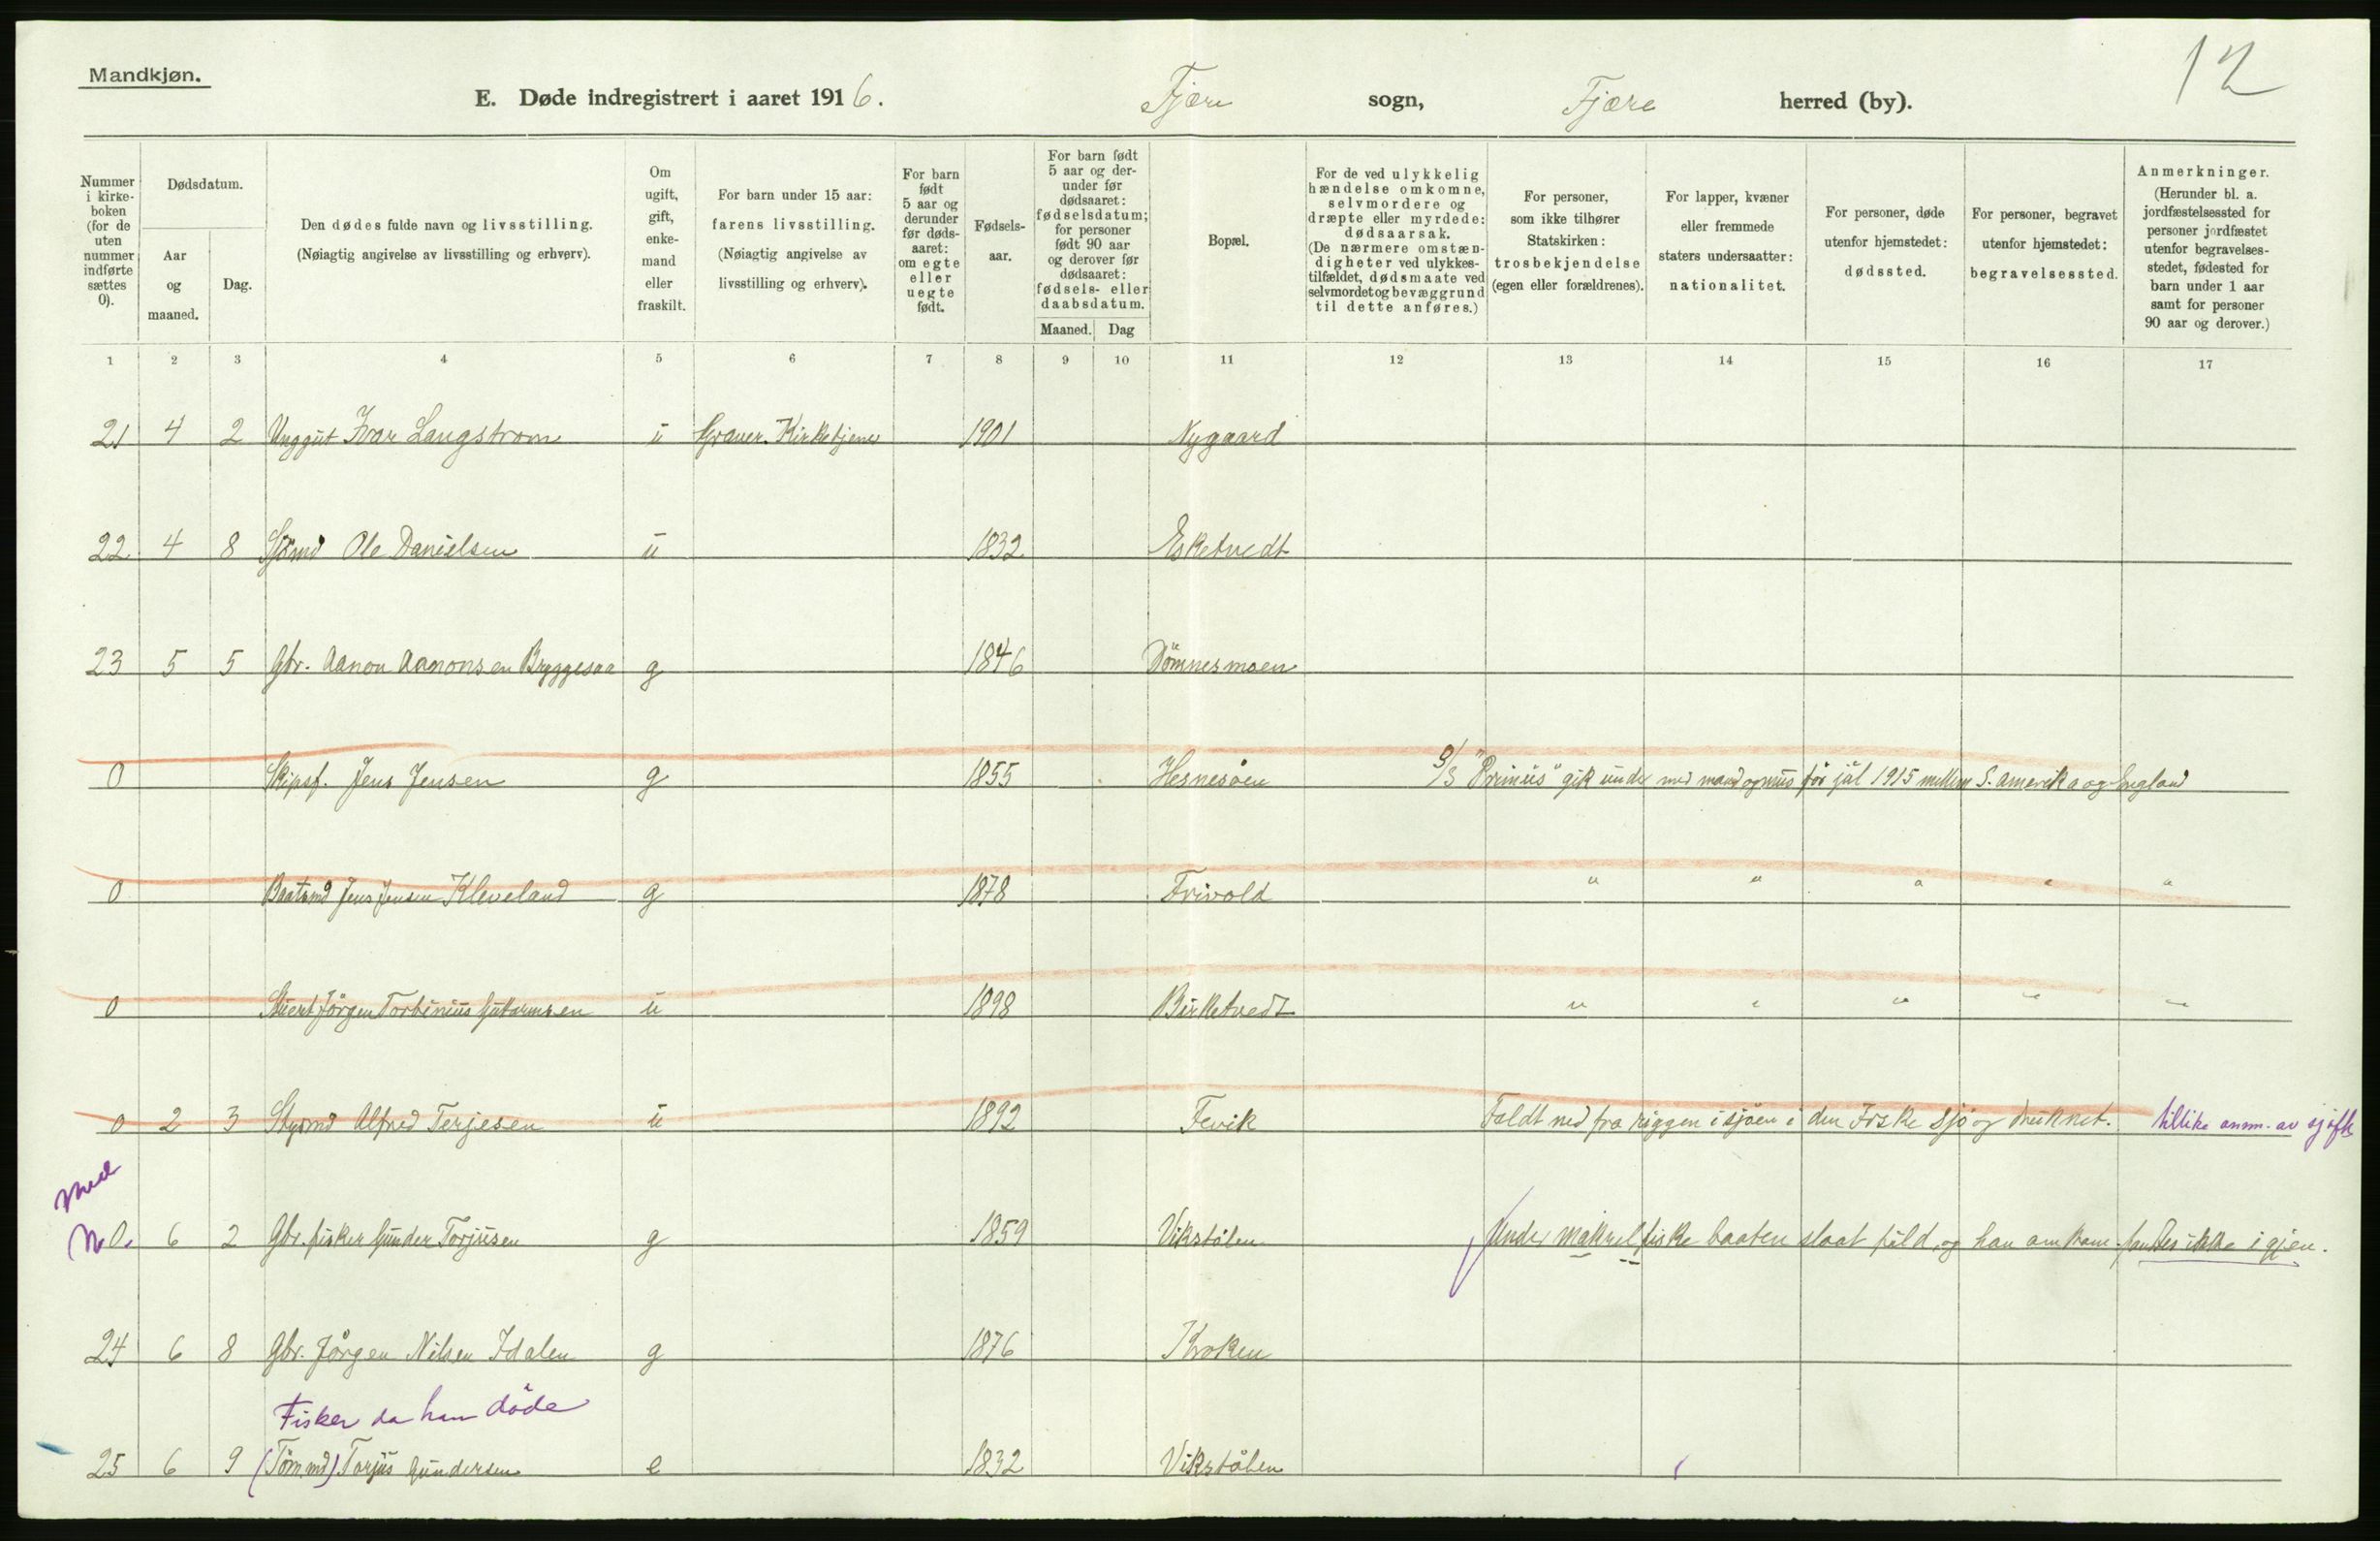 Mandkjøn.
12
E. Døde indregistrert i aaret 1916. Fjære sogn, Fjære herred (by).
Nummer i kirke-boken (for de uten nummer indførte sættes 0).
Dødsdatum.
Aar og maaned.
Dag.
Den dødes fulde navn og livsstilling. (Nøiagtig angivelse av livsstilling og erhverv).
Om ugift, gift, enke-mand eller fraskilt.
For barn under 15 aar: farens livsstilling. (Nøiagtig angivelse av livsstilling og erhverv).
For barn født 5 aar og derunder før døds-aaret: om egte eller uegte født.
Fødsels-aar.
For barn født 5 aar og der-under før dødsaaret: fødselsdatum; for personer født 90 aar og derover før dødsaaret: fødsels- eller daabsdatum.
Maaned. Dag
Bopæl.
For de ved ulykkelig hændelse omkomne, selvmordere og dræpte eller myrdede: dødsaarsak. (De nærmere omstæn-digheter ved ulykkes-tilfældet, dødsmaate ved selvmordet og bevæggrund til dette anføres.)
For personer, som ikke tilhører Statskirken: trosbekjendelse (egen eller forældrenes).
For lapper, kvæner eller fremmede staters undersaatter: nationalitet.
For personer, døde utenfor hjemstedet: dødssted.
For personer, begravet utenfor hjemstedet: begravelsessted.
Anmerkninger. (Herunder bl. a. jordfæstelsessted for personer jordfæstet utenfor begravelses-stedet, fødested for barn under 1 aar samt for personer 90 aar og derover.)
1 2 3 4 5 6 7 8 9 10 11 12 13 14 15 16 17
21 4 2 Unggut Ivar Langstrøm u Graver. Kirketjener 1901 Nygaard
22 4 8 Sjömd Ole Danielsen u 1832 Esketvedt
23 5 5 Gbr. Aanon Aanonsen Bryggesaa g 1846 Dömnesmoen
0 Skipsf. Jens Jensen g 1855 Hesnesöen S/S "Primus" gik under med mand og mus för jul 1915 mellem S. Amerika og England
0 Baatsmd Jens Jensen Kleveland g 1878 Frivold " " " " "
0 Stuert Jörgen Torbinius Guttormsen u 1898 Birketvedt " " " " "
0 2 3 Styrmd Alfred Terjesen u 1892 Fevik Faldt ned fra riggen i sjöen i den Irske Sjö og druknet. tillike anm. av sjöfk
Med
No. 6 2 Gbr. fisker Gunder Torjusen g 1859 Vikstölen Under makrelfiske baaten slaat fuld, og han omkom - fandtes ikke igjen.
24 6 8 Gbr. Jörgen Nilsen Idalen g 1876 Kroken
Fisker da han döde
25 6 9 (Tömmd) Torjus Gundersen e 1832 Vikstölen